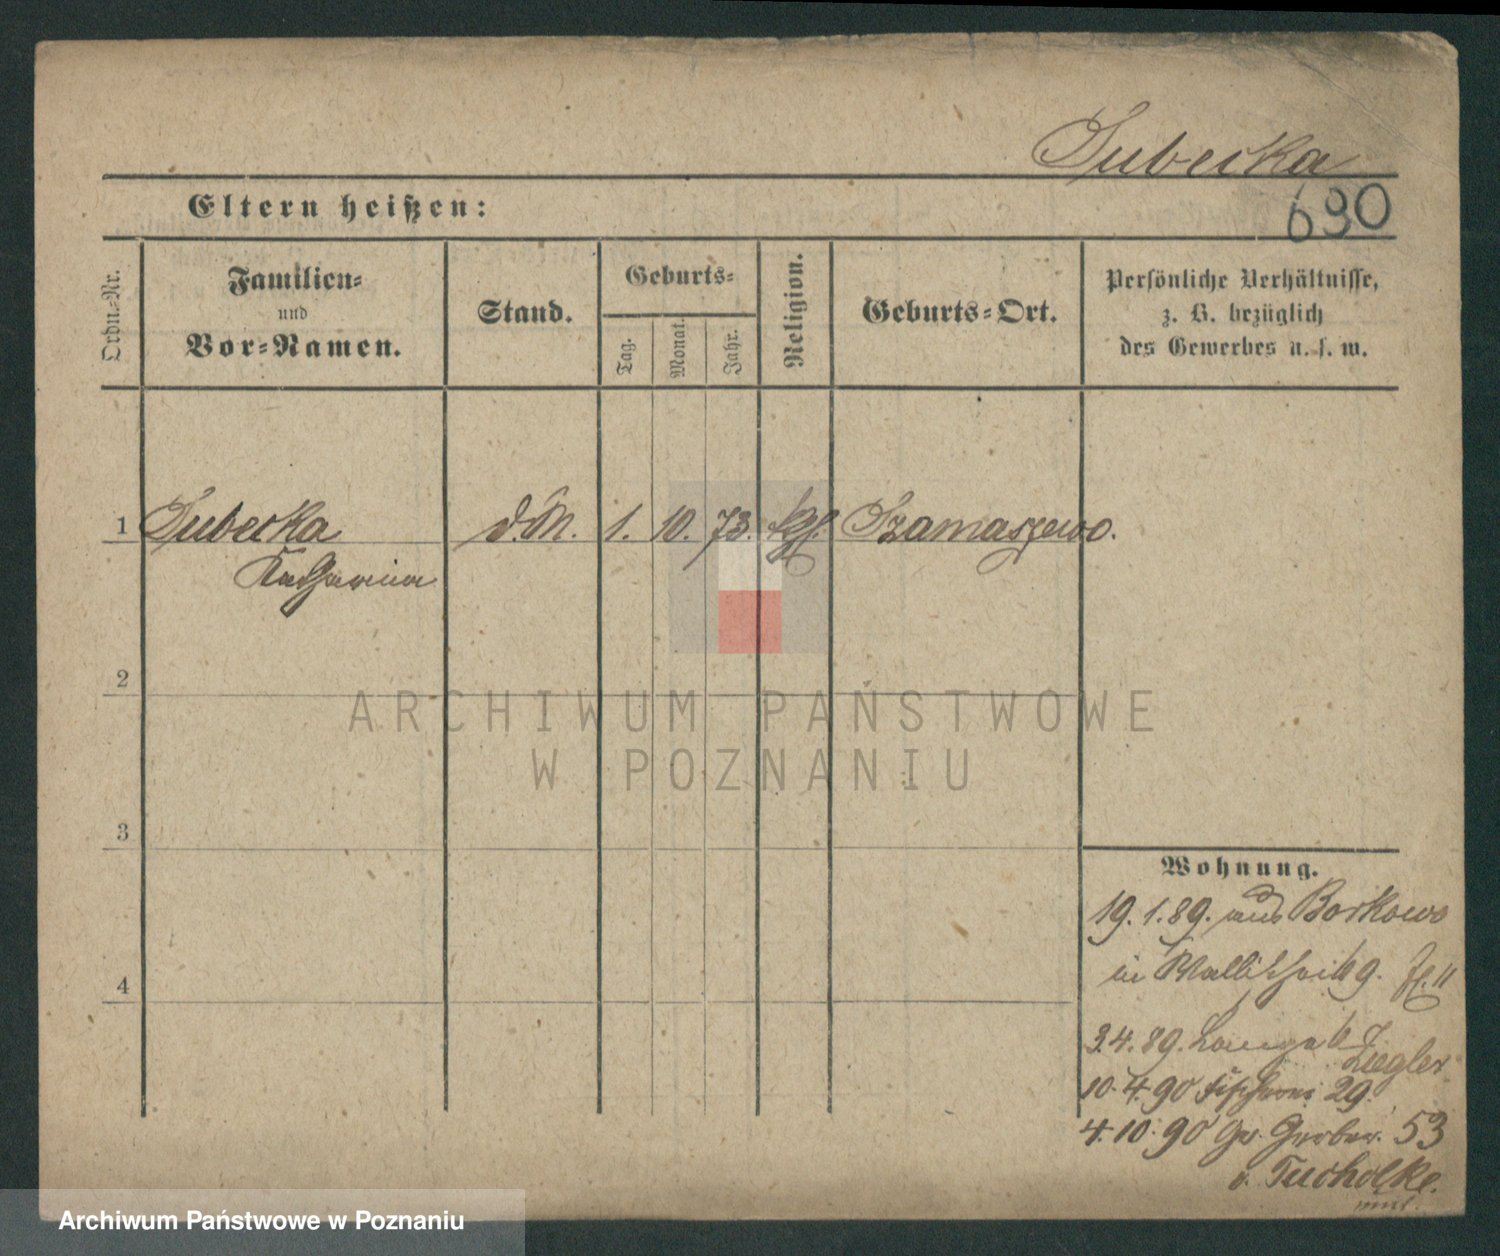 Dubecka
Eltern heißen:
690
Ordn.-Nr.
Familien-
und
Vor-Namen.
Stand.
Geburts-
Tag.
Monat.
Jahr.
Religion.
Geburts-Ort.
Persönliche Verhältnisse,
z. B. bezüglich
des Gewerbes u. s. w.
1 Dubecka d.M. 1. 10. 73. Szamaszewo.
Katharina
2
ARCHIWUM PAŃSTWOWE
W POZNANIU
3
Wohnung.
19.1.89. aus Borkowo
in Wallischei 69.
4
3.4.89. Lange 67
Ziegler
10.4.90 Fischerei 29.
4.10.90 Gr. Gerber. 53
v. Tucholke.
Archiwum Państwowe w Poznaniu